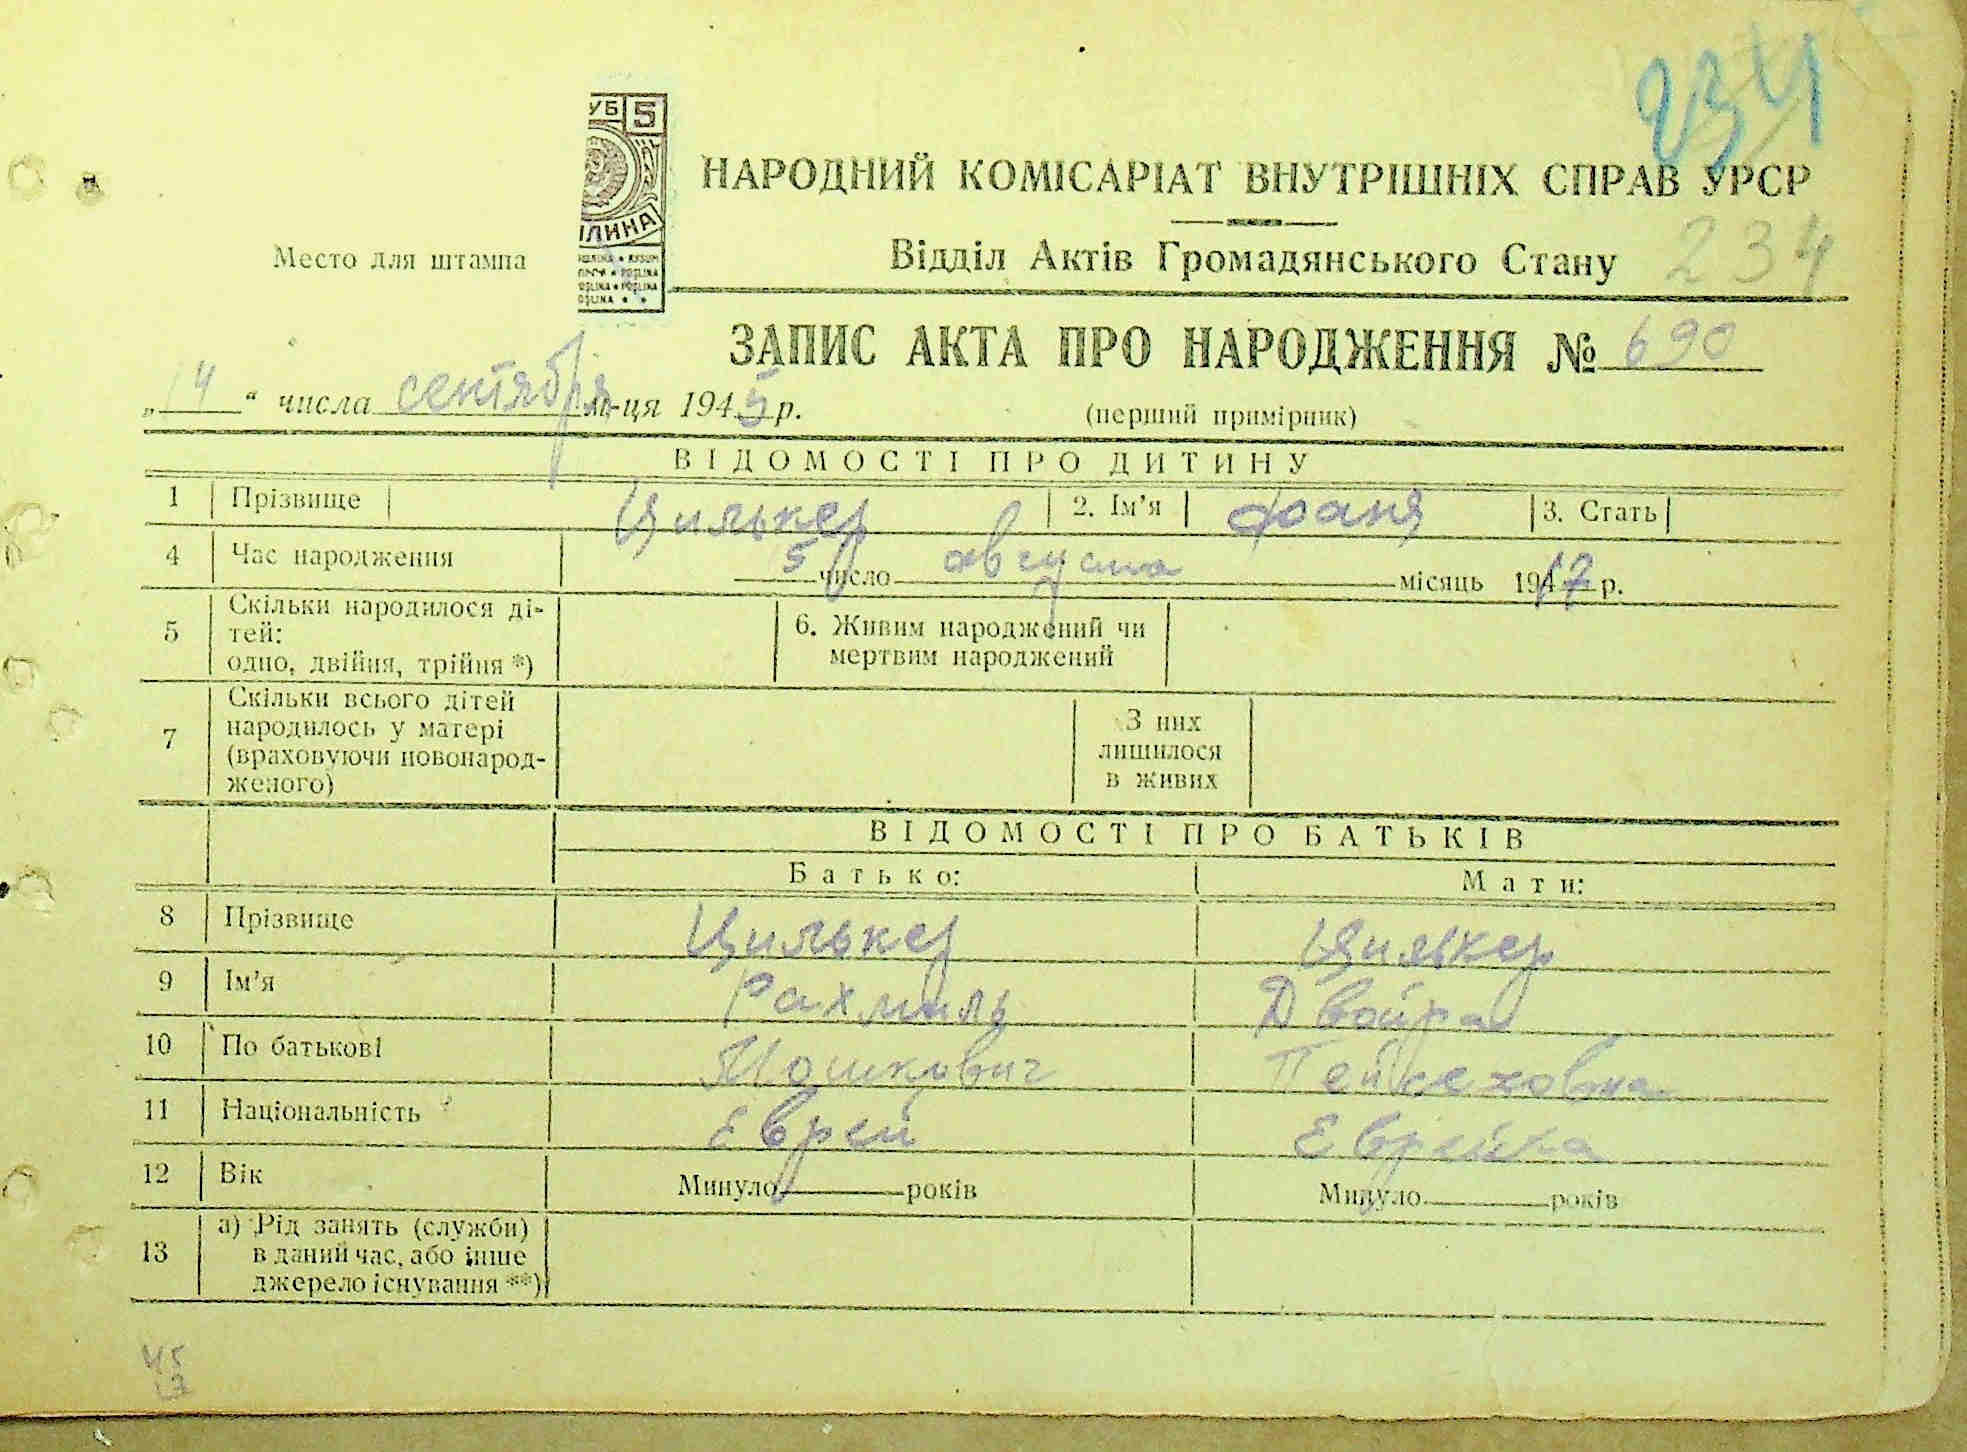 234
УБ 5
НАРОДНИЙ КОМІСАРІАТ ВНУТРІШНІХ СПРАВ УРСР
ЛИНА
Место для штампа
Відділ Актів Громадянського Стану 234
POSLINA
OSLINA
ЗАПИС АКТА ПРО НАРОДЖЕННЯ № 690
„14“ числа сентября м-ця 1945 р. (перший примірник)
ВІДОМОСТІ ПРО ДИТИНУ
1 Прізвище Цилькер 2. Ім'я Фаня 3. Стать
4 Час народження 5 число августа місяць 1917 р.
5 Скільки народилося ді-
тей:
одно, двійня, трійня *)
6. Живим народжений чи
мертвим народжений
7 Скільки всього дітей
народилось у матері
(враховуючи новонарод-
женого)
З них
лишилося
в живих
ВІДОМОСТІ ПРО БАТЬКІВ
Батько: Мати:
8 Прізвище Цилькер Цилькер
9 Ім'я Рахмиль Двойра
10 По батькові Мошкович Пейсеховна
11 Національність Еврей Еврейка
12 Вік Минуло років Минуло років
13 а) Рід занять (служби)
в даний час, або інше
джерело існування **)
45
17